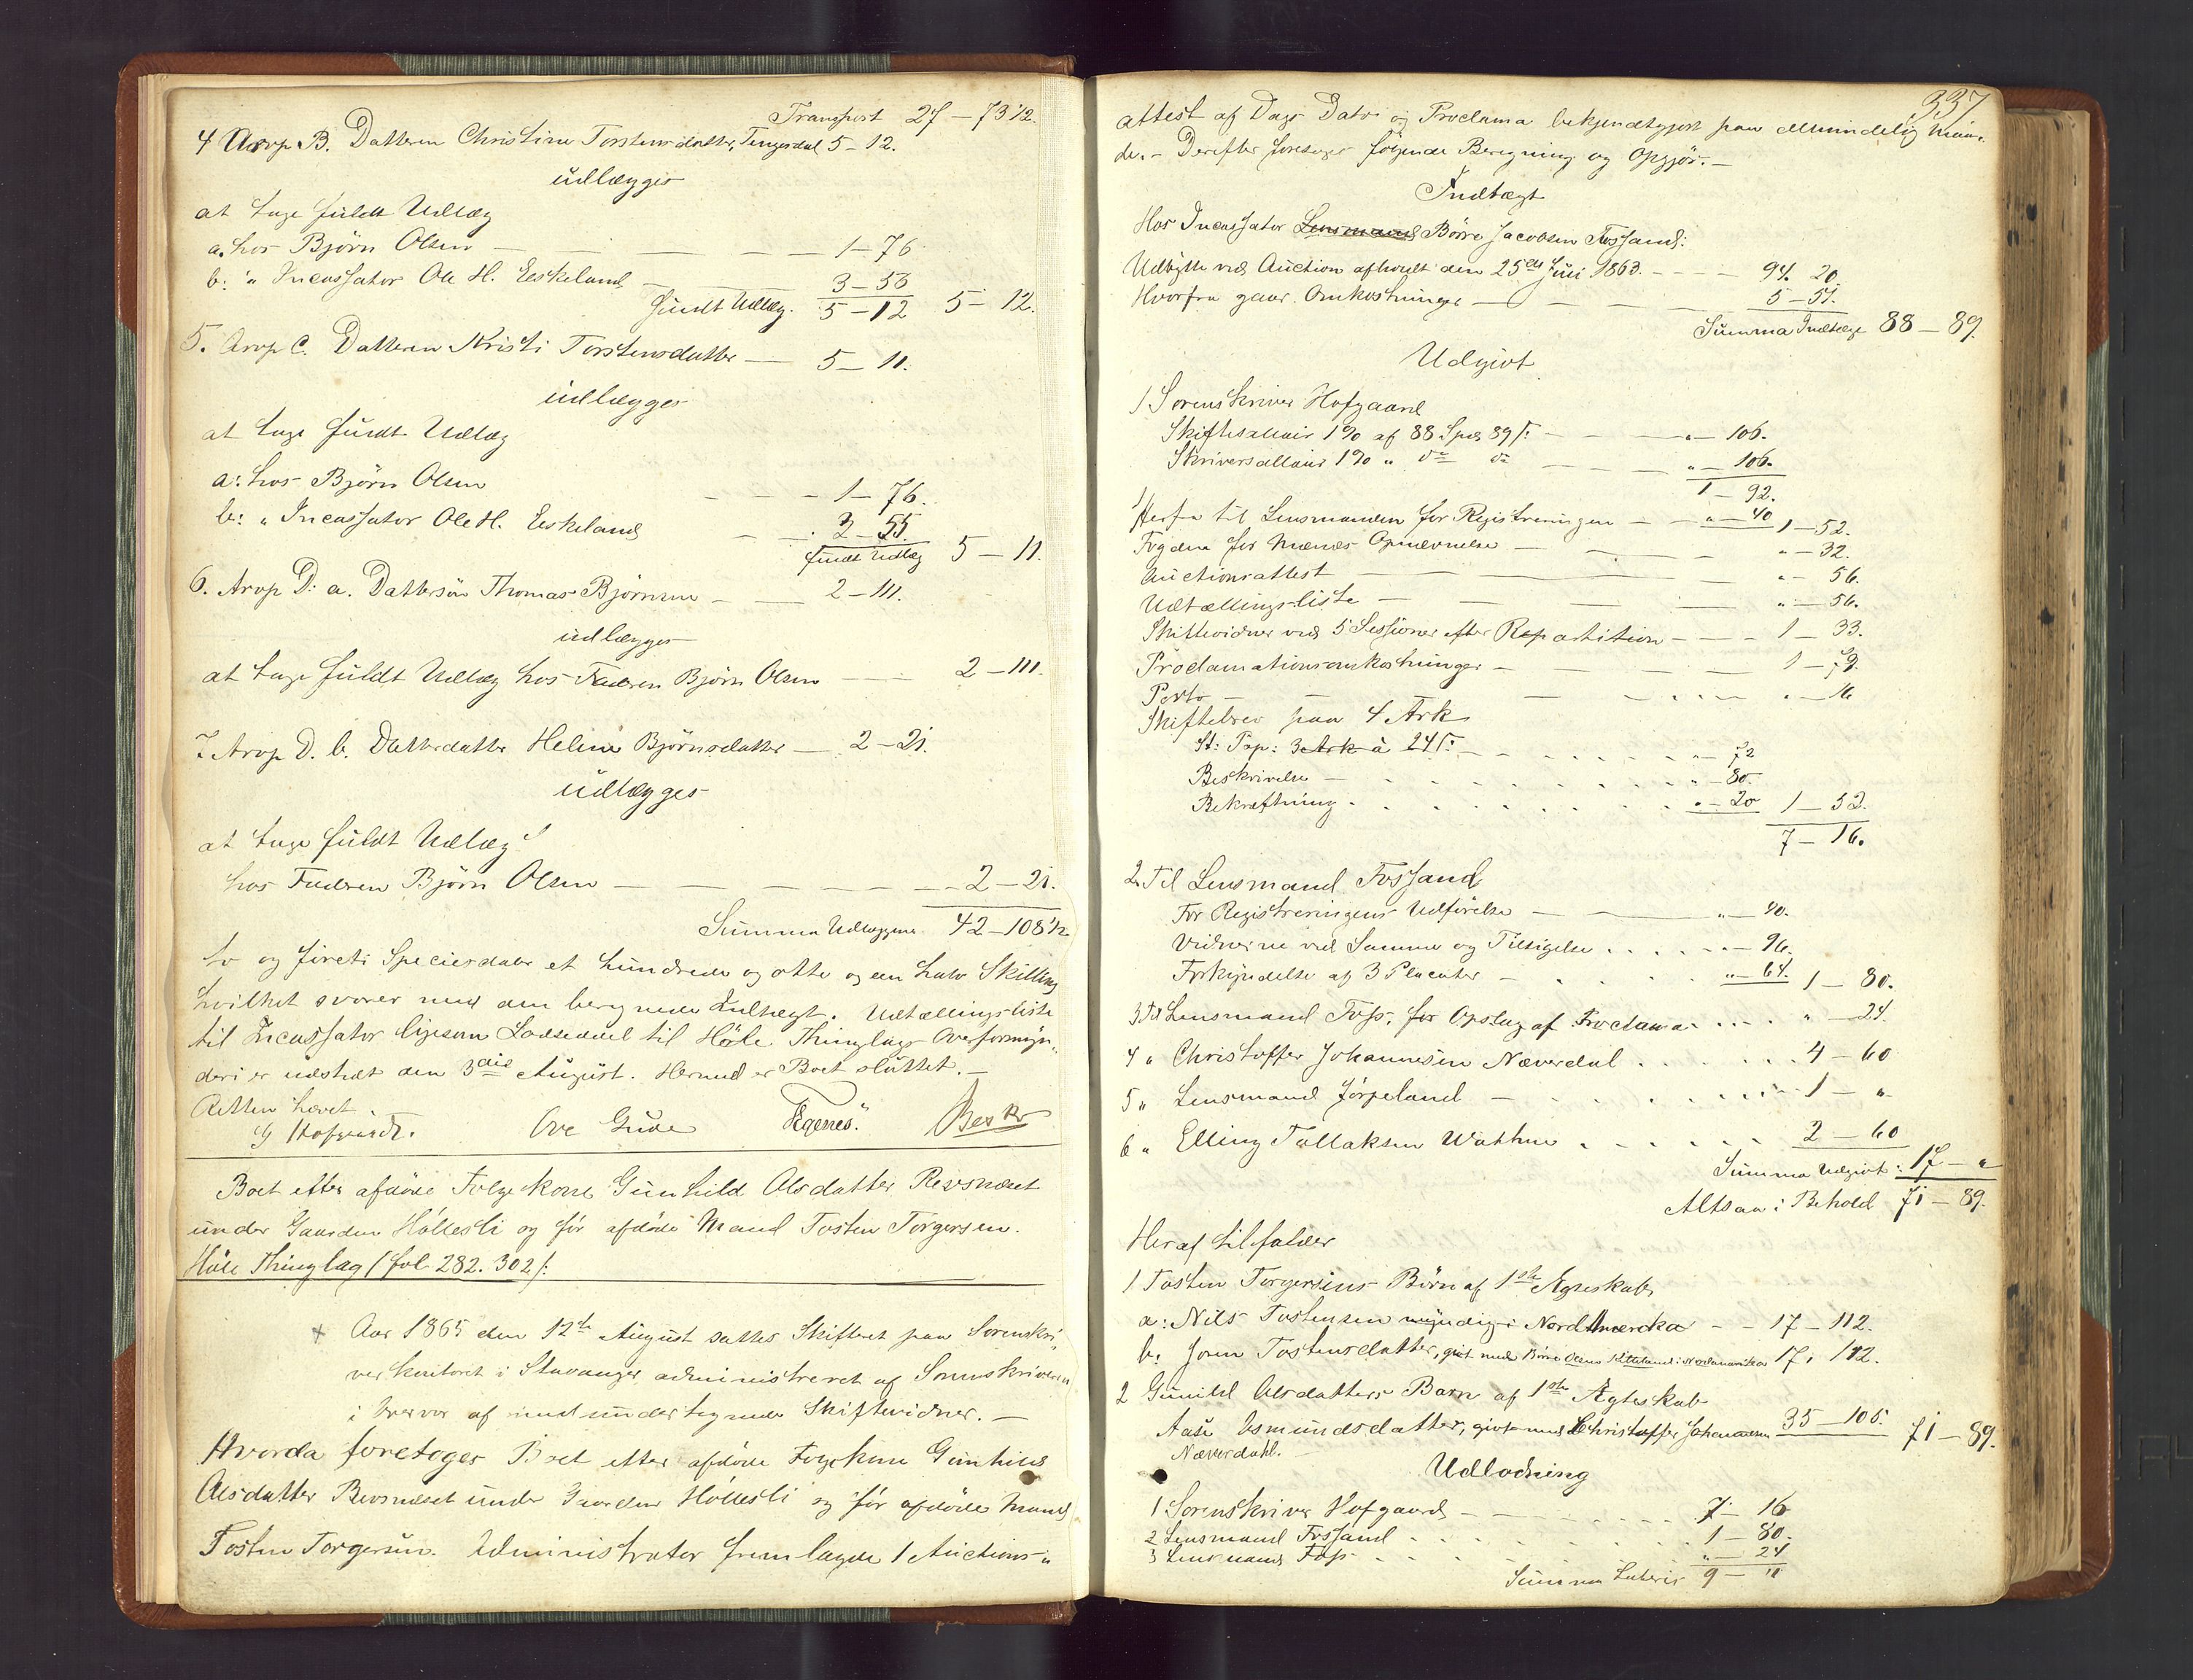 Transport 27 – 73 1/2.
4 Arvg B. Datteren Christine Torstensdatter, Tengesdal 5 – 12.
udlægges
at tage fuldt Udlæg
a. hos Bjørn Olsen — — — — 1 – 76
b: " Incassator Ole H. Eskeland — 3 – 56
fuldt Udlæg. 5 – 12 5 – 12.
5. Arvg C. Datteren Kristi Torstensdatter — 5 – 11.
udlægges
at tage fuldt Udlæg
a: hos Bjørn Olsen — — — 1 – 76.
b: " Incassator Ole H. Eskeland — — 3 – 55.
fuldt Udlæg 5 – 11.
6. Arvg D: a. Dattersøn Thomas Bjørnsen — — 2 – 111.
udlægges
at tage fuldt Udlæg hos Faderen Bjørn Olsen — — 2 – 111.
7 Arvg D. b. Datterdatter Heline Bjørnsdatter — 2 – 21.
udlægges
at tage fuldt Udlæg
hos Faderen Bjørn Olsen — — — — — — 2 – 21.
Summa Udlæggene 42 – 108 1/2
to og førti Speciedaler et hundrede og otte og een halv Skilling
hvilket svarer med den beregnede Indtægt. Udtællingsliste
til Incassator ligesom Lodseddel til Høle Thinglags Overformyn-
deri er udstedt den 3die August. Hermed er Boet sluttet. –
Retten hævet.
G Hofgaard. Ove Gude Egenes. Beskr
Boet efter afdøde Folgekone Gunhild Olsdatter Revsneset
under Gaarden Høllesli og før afdøde Mand Tosten Torgersen.
Høle Thinglag (fol 282. 302):
+ Aar 1865 den 12te August sattes Skifteret paa Sorenskri-
verkontoret i Stavanger administreret af Sorenskriveren
i Overvær af medundertegnede Skiftevidner. –
Hvorda foretoges Boet efter afdøde Folgekone Gunhild
Olsdatter Revsneset under Gaarden Høllesli og før afdøde Mand
Tosten Torgersen. Administrator fremlagde 1 Auctions-
337
attest af Dags Dato og Proclama bekjendtgjort paa almindelig Maa-
de. – Derefter foretoges følgende Beregning og Opgjør. –
Indtægt
Hos Incassator Lensmand Børre Jacobsen Fossand:
Udbytte ved Auction afholdt den 25de Juni 1863. - - - - 94. 20
Hvorfra gaaer Omkostninger — — — 5 – 51.
Summa Indtægt 88 – 89.
Udgivt
1 Sorenskriver Hofgaard
Skiftesallair 1% af 88 Spd 89 s: — — " – 106.
Skriversallair 1% " do do — — " – 106.
1 – 92.
Herfra til Lensmanden for Registreringen — — " – 40 1 – 52.
Fogden for Mænds Opnævnelse — — — " – 32.
Auctionsattest — — — " – 56.
Udtællingsliste — — — " – 56.
Skiftevidner ved 5 Sessioner efter Repartition — — 1 – 33.
Proclamationsomkostninger — — — 1 – 79.
Porto — — — " – 16
Skiftebrev paa 4 Ark
St: Pap: 3 Ark à 24 s: . . . . . " – 72
Beskrivelse — . . . . . " – 80.
Bekræftning . . . . . " – 20 1 – 52.
7 – 16.
2. Til Lensmand Fossand
For Registreringens Udførelse — — " – 40.
Vidnerne ved Samme og Tilsigelse . . . . " – 96.
Forkyndelse af 3 Placater — . . . " – 64. 1 – 80.
3 Til Lensmand Foss, for Opslag af Proclama . . . . " – 24.
4 " Christoffer Johannesen Næverdal . . . . . 4 – 60
5 " Lensmand Jørpeland — . . . . . 1 – "
6 " Elling Tollaksen Wathne . . . . . 2 – 60
Summa Udgivt: 17 – "
Altsaa i Behold 71 – 89.
Heraf tilfalder
1 Tosten Torgersens Børn af 1ste Ægteskab
a: Niels Tostensen myndig i Nordamerika — — 17 – 112.
b. Joren Tostensdatter, givt med Børre i Nordamerika 17. 112.
2 Gunild Olsdatters Barn af 1ste Ægteskab
Aase Osmundsdatter, givt med Christoffer Johannesen 35 – 105. 71 – 89.
Næverdahl.
Udlodning
1 Sorenskriver Hofgaard — . . . . . 7 – 16
2 Lensmand Fossand . . . . . 1 – 80.
3 Lensmand Foss . . . . . " – 24
Summa Lateris 9 – "